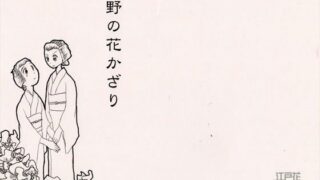 野の花かざり
江戸花